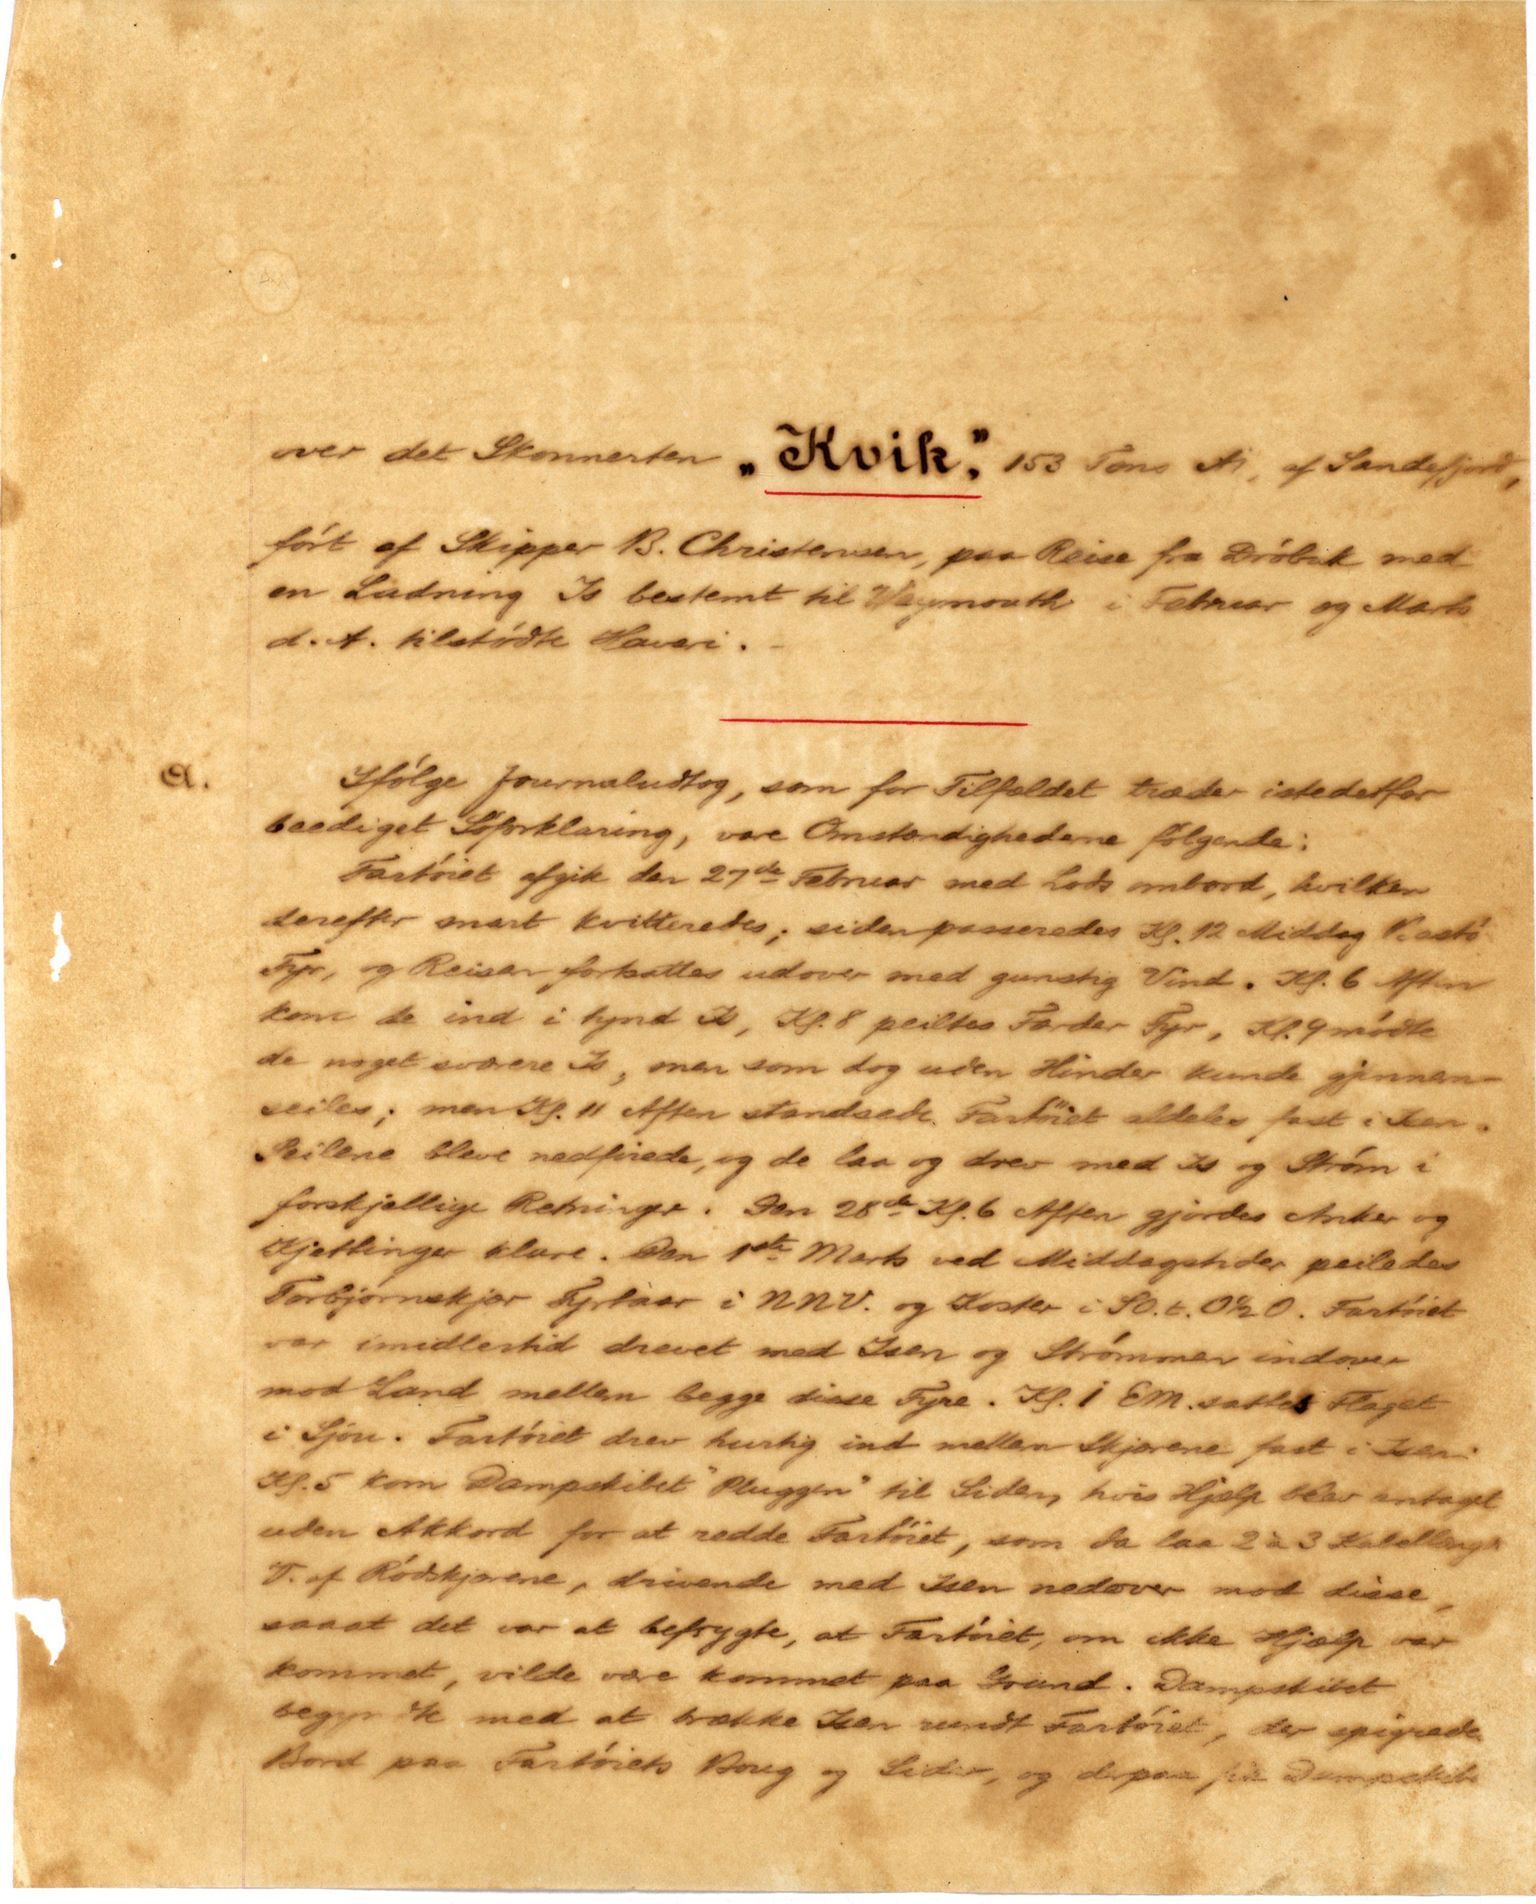 over det Skonnerten „Kvik", 153 Tons A1, af Sandefjord,
ført af Skipper B. Christensen, paa Reise fra Drøbak med
en Ladning Is bestemt til Weymouth i Februar og Marts
d. A. tilstødte Havari.
A.
Ifølge Journaludtog, som for Tilfældet træder istedetfor
beediget Søforklaring, vare Omstændighederne følgende:
Fartøiet afgik den 27de Februar med Lods ombord, hvilken
derefter snart kvitteredes; siden passeredes Kl. 12 Middag
Fyr, og Reisen fortsattes udover med gunstig Vind. Kl. 6 Aften
kom de ind i tynd Is, Kl. 8 peiltes Færder Fyr, Kl. 9 mødte
de noget svære Is, men som dog uden Hinder kunde gjennem-
seiles; men Kl. 11 Aften standsede Fartøiet aldeles fast i Isen.
Seilene bleve nedfirede, og de laa og drev med Is og Strøm i
forskjellige Retninger. Den 28de Kl. 6 Aften gjordes Anker og
Kjettinger klare. Den 1ste Marts ved Middagstider peiledes
Torbjørnskjær Fyrtaar i NNV. og Koster i SO. t. O½O. Fartøiet
var imidlertid drevet med Isen og Strømmen indover
mod Land mellem begge disse Fyre. Kl. 1 EM. sattes Flaget
i Sjøu. Fartøiet drev hurtig ind mellem Skjærene fast i Isen.
Kl. 5 kom Dampskibet "Pluggen" til Siden, hvis Hjælp blev antaget
uden Akkord for at redde Fartøiet, som da laa 2 à 3 Kabellængder
V. af Rødskjærene, drivende med Isen nedover mod disse,
saaat det var at befrygte, at Fartøiet, om ikke Hjælp var
kommet, vilde være kommet paa Grund. Dampskibet
begyndte med at brække Isen rundt Fartøiet, der spigrede
Bord paa Fartøiets Boug og Sider, og derpaa fik Dampskibet